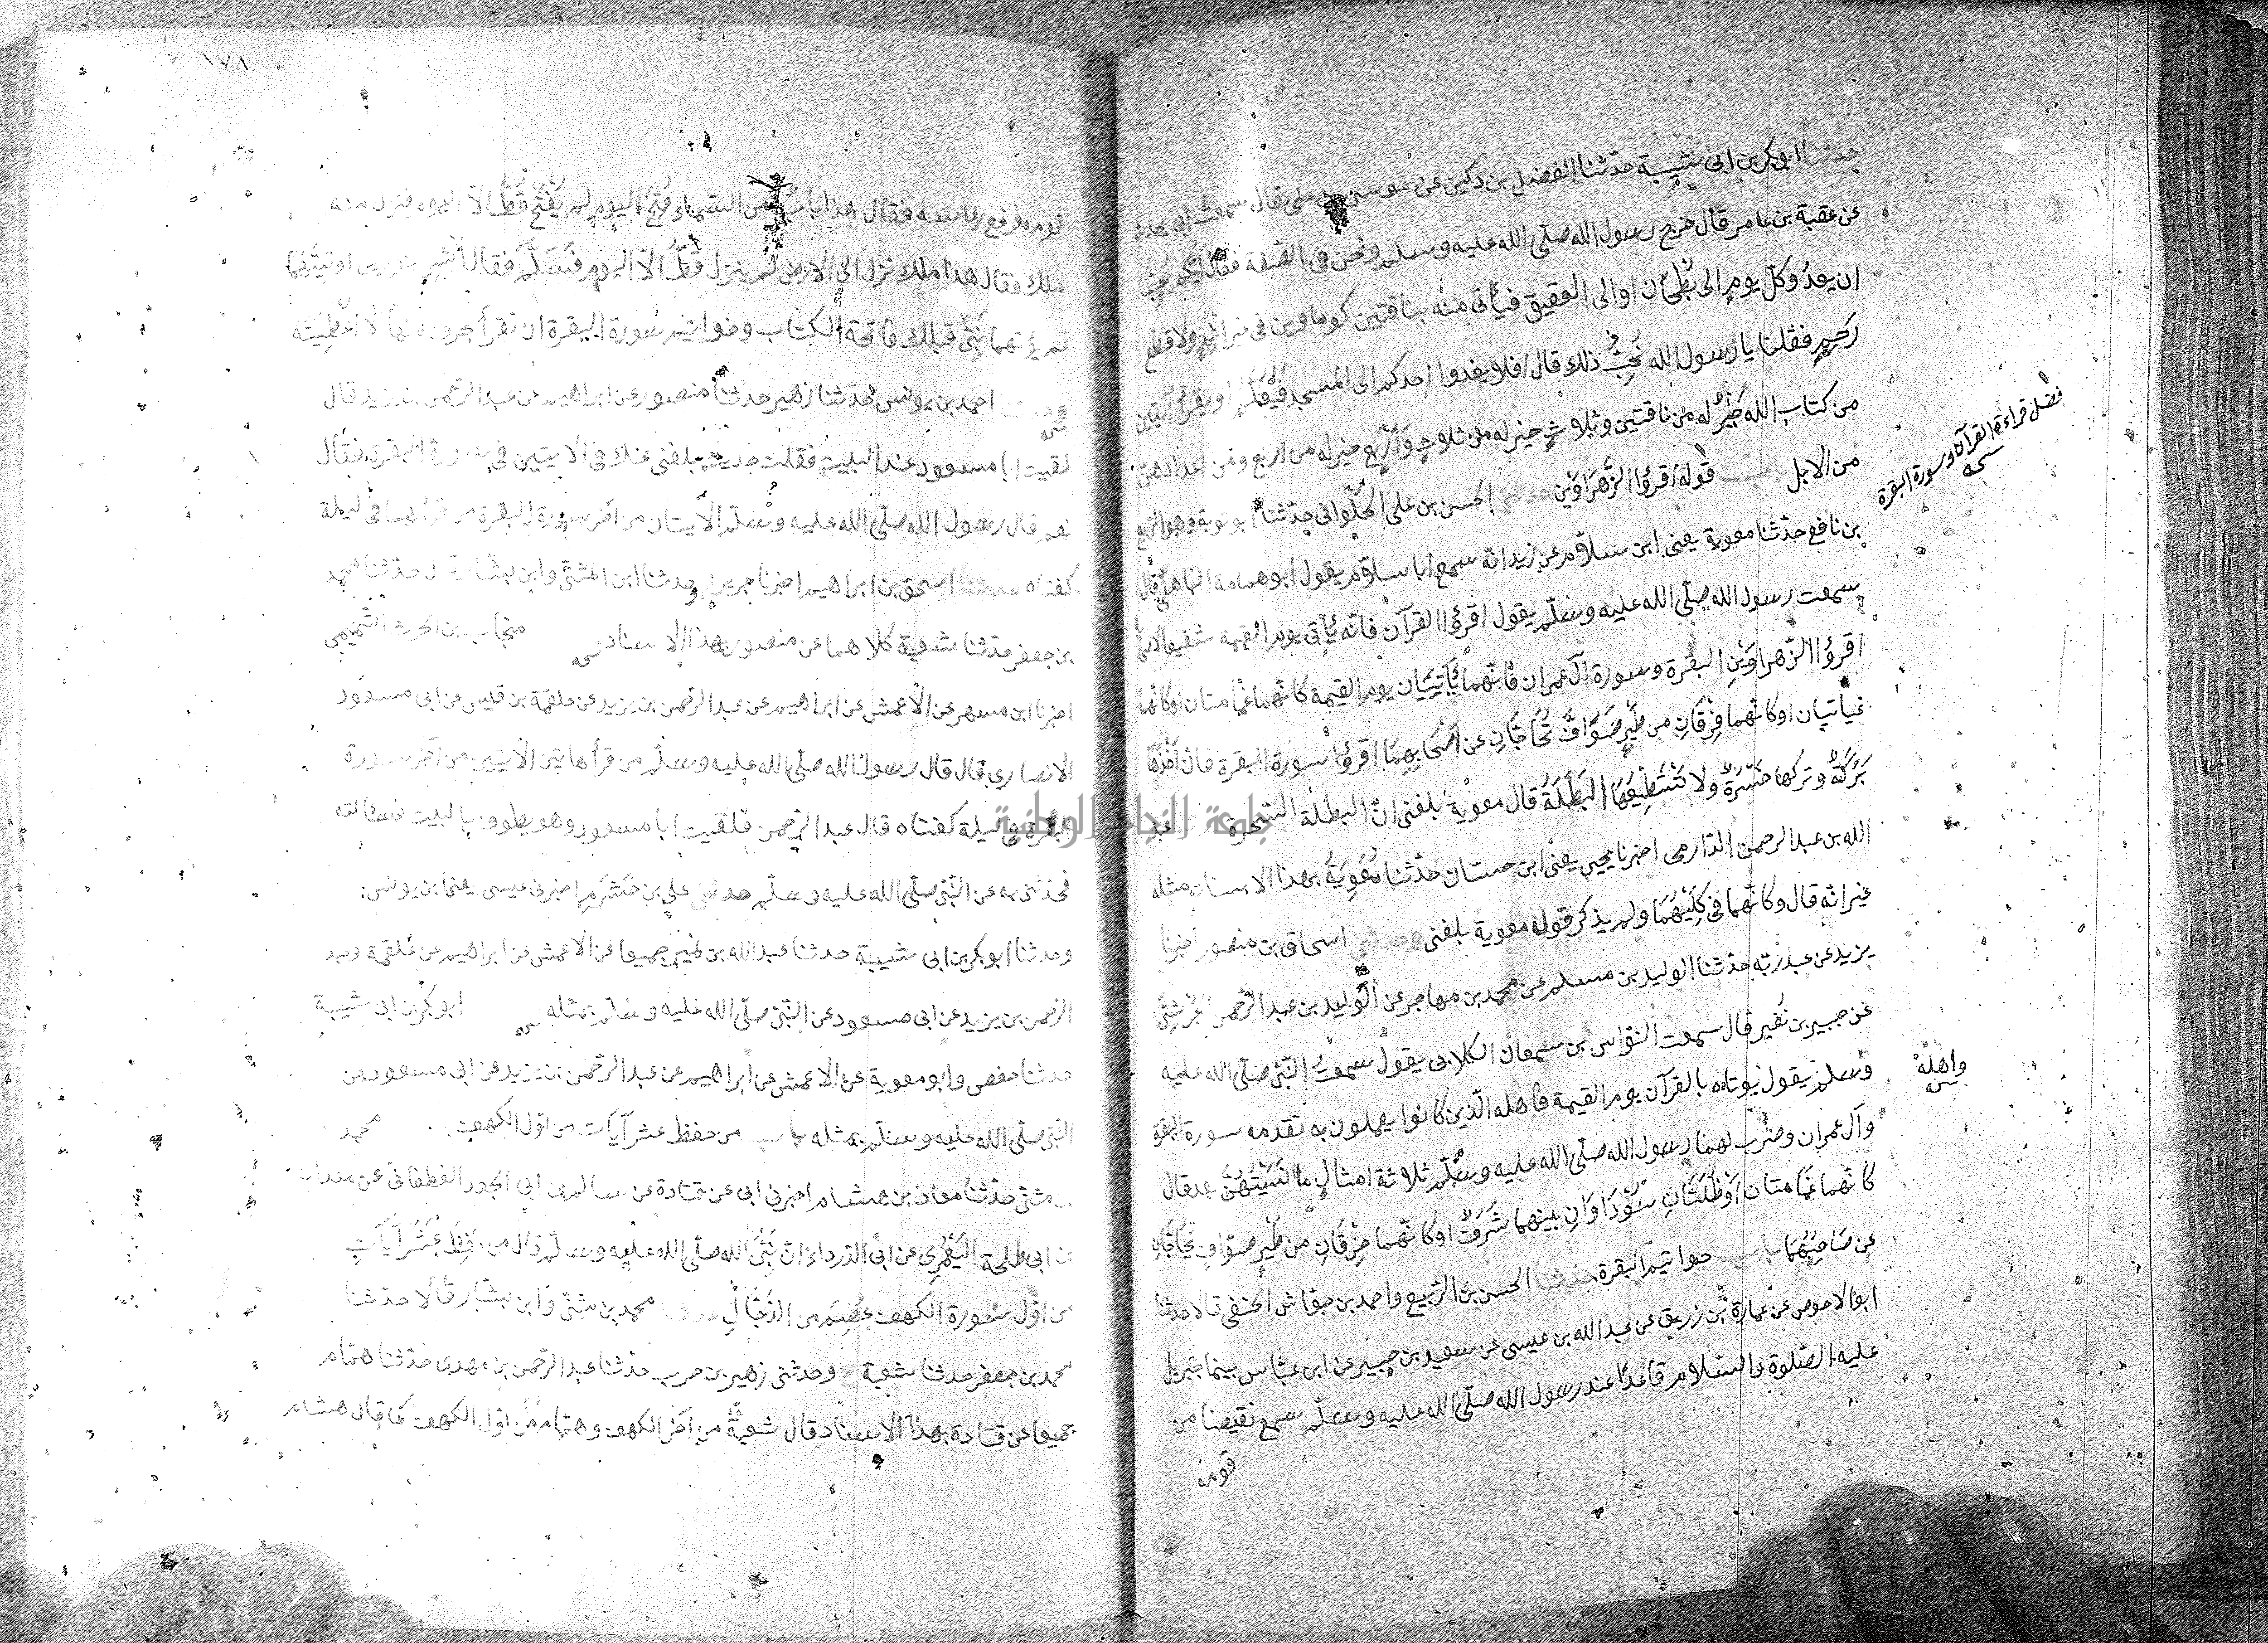 حدثنا ابو بكر بن ابى شيبة حدثنا الفضل بن دكين عن موسى بن على قال سمعت ابى يحدث
عن عقبة بن عامر قال خرج رسول الله صلّى الله عليه وسلم ونحن فى الصّفة فقال ايّكم يُحِبُّ
ان يعدُو كلّ يومٍ الى بُطْحَان او الى العقيق فيأتى منه بناقتين كوماوين فى غير اثم ولا قطع
رَحِمٍ فقلنا يا رسول الله نُحِبُّ ذلك قال افلا يغدوا احدكم الى المسجد فَيُعَلِّم او يقرأ آيتين
من كتاب الله خَيْرٌ له من ناقتين وثلاثٍ خير له من ثلاثٍ وَاَرْبَعٍ خير له من اربع ومن اعدادهن
من الابل باب قوله اقرؤا الزَّهْرَاوَيْن حدثنى الحسن بن على الحُلْوانى حدّثنا ابو توبة وهو الربيع
فضل قراءة القرآن وسورة البقرة
نسخه
بن نافع حدّثنا معوية يعنى ابن سلاّم عن زيد انّه سمع ابا سلاّم يقول ابو همامة الباهلى قال
سمعت رسول الله صلّى الله عليه وسلّم يقول اقرؤا القرآن فانّه يأتى يوم القيمة شفيعا
اقرؤا الزّهراوَيْنِ البقرة وسورة آل عمران فانّهما يأتِيَان يوم القيمة كانّهما غمامتان او كانهما
غيايتان او كانّهما فِرْقَانِ من طَيْرٍ صَوَافَّ تُحَاجَّانِ عن اصْحَابِهِمَا اقرؤا سورة البقرة فان اخْذَهَا
بَرَكَةٌ وتركها حَسْرَةٌ ولا تَسْتَطِيعُهَا البَطَلَةُ قال معوية بلغنى انّ البطلة السّحرة عبد
الله بن عبد الرحمن الدّارمى اخبرنا يحيى يعنى ابن حسّان حدّثنا مُعَوِيَةُ بهذا الاسناد مثله
غير انّه قال وكانّهما فى كِلَيْهِمَا ولم يذكر قول معوية بلغنى وحدثنى اسحاق بن منصور اخبرنا
يزيد عن عبد ربّه حدّثنا الوليد بن مسلم عن محمد بن مهاجر عن الوليد بن عبد الرّحمن الجُرَشِىّ
عن جبير بن نُفَير قال سمعت النوّاس بن سمعان الكلابى يقول سمعت النّبىّ صلّى الله عليه
وسلم يقول يؤتا بالقرآن يوم القيمة فاهله الّذين كانوا يعملون به تقدمه سورة البقرة
واهله
وآل عمران وضرب لهما رسول الله صلّى الله عليه وسلّم ثلاثة امثالٍ ما نَسِيتُهُنَّ بعد قال
كانّهما غمامتان او ظُلّتَانِ سَوْدَاوَانِ بينهما شَرَقٌ او كانّهما حِزْقَانِ من طَيْرٍ صوّاف تُحَاجَّانِ
عن صَاحِبِهِمَا باب خواتيم البقرة حدّثنا الحسن بن الرّبيع واحمد بن جوّاس الحنفى قالا حدّثنا
ابو الاحوص عن عمارة بن زريق عن عبد الله بن عيسى عن سعيد بن جبير عن ابن عبّاس بينما جبريل
عليه الصّلوة والسّلام قاعدًا عند رسول الله صلّى الله عليه وسلّم سمع نقيضا من
فومه
١٧٨
فومه فرفع راسه فقال هذا بابٌ من السّماء فُتِحَ اليوم لم يُفْتَحْ قَطُّ الاّ اليوم فنزل منه
ملك فقال هذا ملك نزل الى الارض لم ينزل قَطُّ الاّ اليوم فَسَلَّمَ فقال ابشر بنورين اوتيتهما
لم يؤتهما نَبِىٌّ قبلك فاتحة الكتاب وخواتيم سورة البقرة ان تقرأ بحرف منهما الا اعْطِيتَه
وحدثنا احمد بن يونس حدّثنا زهير حدّثنا منصور عن ابراهيم عن عبد الرّحمن بن يزيد قال
لقيت ابا مسعود عند البيت فقلت حديث بلغنى عنك فى الايتين فى سورة البقرة فقال
نعم قال رسول الله صلّى الله عليه وسلّم الآيتان من آخر سورة البقرة من قرأهما فى ليلة
كفتاه حدثنا اسحق بن ابراهيم اخبرنا جرير وحدثنا ابن المثنّى وابن بشّار قال حدّثنا محمد
بن جعفر حدّثنا شعبة كلاهما عن منصور بهذا الاسناد منجاب بن الحرث التّميمى
اخبرنا ابن مسهر عن الاعمش عن ابراهيم عن عبد الرّحمن بن يزيد عن علقمة بن قيس عن ابى مسعود
الانصارى قال قال رسول الله صلّى الله عليه وسلّم من قرأ هاتين الايتين من آخر سورة
البقرة فى ليلة كفتاه قال عبد الرّحمن فلقيت ابا مسعود وهو يطوف بالبيت فسألته
فحدّثنى به عن النّبىّ صلّى الله عليه وسلّم حدثنى على بن خَشْرَمٍ اخبرنى عيسى يعنى ابن يونس
وحدثنا ابو بكر بن ابى شيبة حدثنا عبد الله بن نمير جميعا عن الاعمش عن ابراهيم عن علقمة وعبد
الرّحمن بن يزيد عن ابى مسعود عن النّبىّ صلّى الله عليه وسلّم بمثله ابو بكر بن ابى شيبة
حدثنا حفص وابو معوية عن الاعمش عن ابراهيم عن عبد الرّحمن بن يزيد عن ابى مسعود عن
النّبىّ صلّى الله عليه وسلّم بمثله باب من حفظ عشر آيات من اوّل الكهف محمد
بن مثنّى حدّثنا معاذ بن هشام اخبرنى ابى عن قتادة عن سالم بن ابى الجعد الغطفانى عن معدان
بن ابى طلحة اليَعْمَرِى عن ابى الدّرداء انّ نَبِىَّ الله صلّى الله عليه وسلّم قال من حَفِظَ عَشْرَ آيَاتٍ
من اوّل سورة الكهف عُصِمَ من الدّجّالِ محمد بن مثنّى وابن بشّار قالا حدّثنا
محمد بن جعفر حدثنا شعبة ح وحدثنى زهير بن حرب حدّثنا عبد الرّحمن بن مهدى حدّثنا همّام
جميعا عن قتادة بهذا الاسناد قال شعبة من آخر الكهف وهمّام من اوّل الكهف كما قال هشام
جامعة النجاح الوطنية